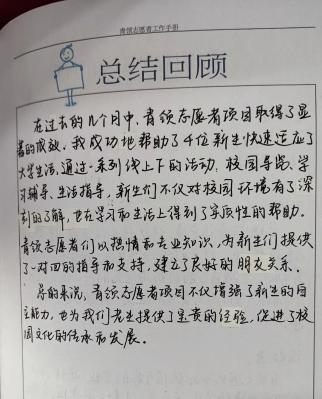 青领志愿者工作手册
总结回顾
在过去的几个月中，青领志愿者项目取得了显
著的成效。我成功地帮助了4位新生快速适应了
大学生活，通过一系列线上下的活动，校园导览、学
习辅导、生活指导，新生们不仅对校园环境有了深
刻的了解，也在学习和生活上得到了实质性的帮助。
青领志愿者们以热情和专业知识，为新生们提供
了一对四的指导和支持，建立了良好的朋友关系。
总的来说，青领志愿者项目不仅增强了新生的自
主能力，也为我们老生提供了宝贵的经验，促进了校
园文化的传承和发展。